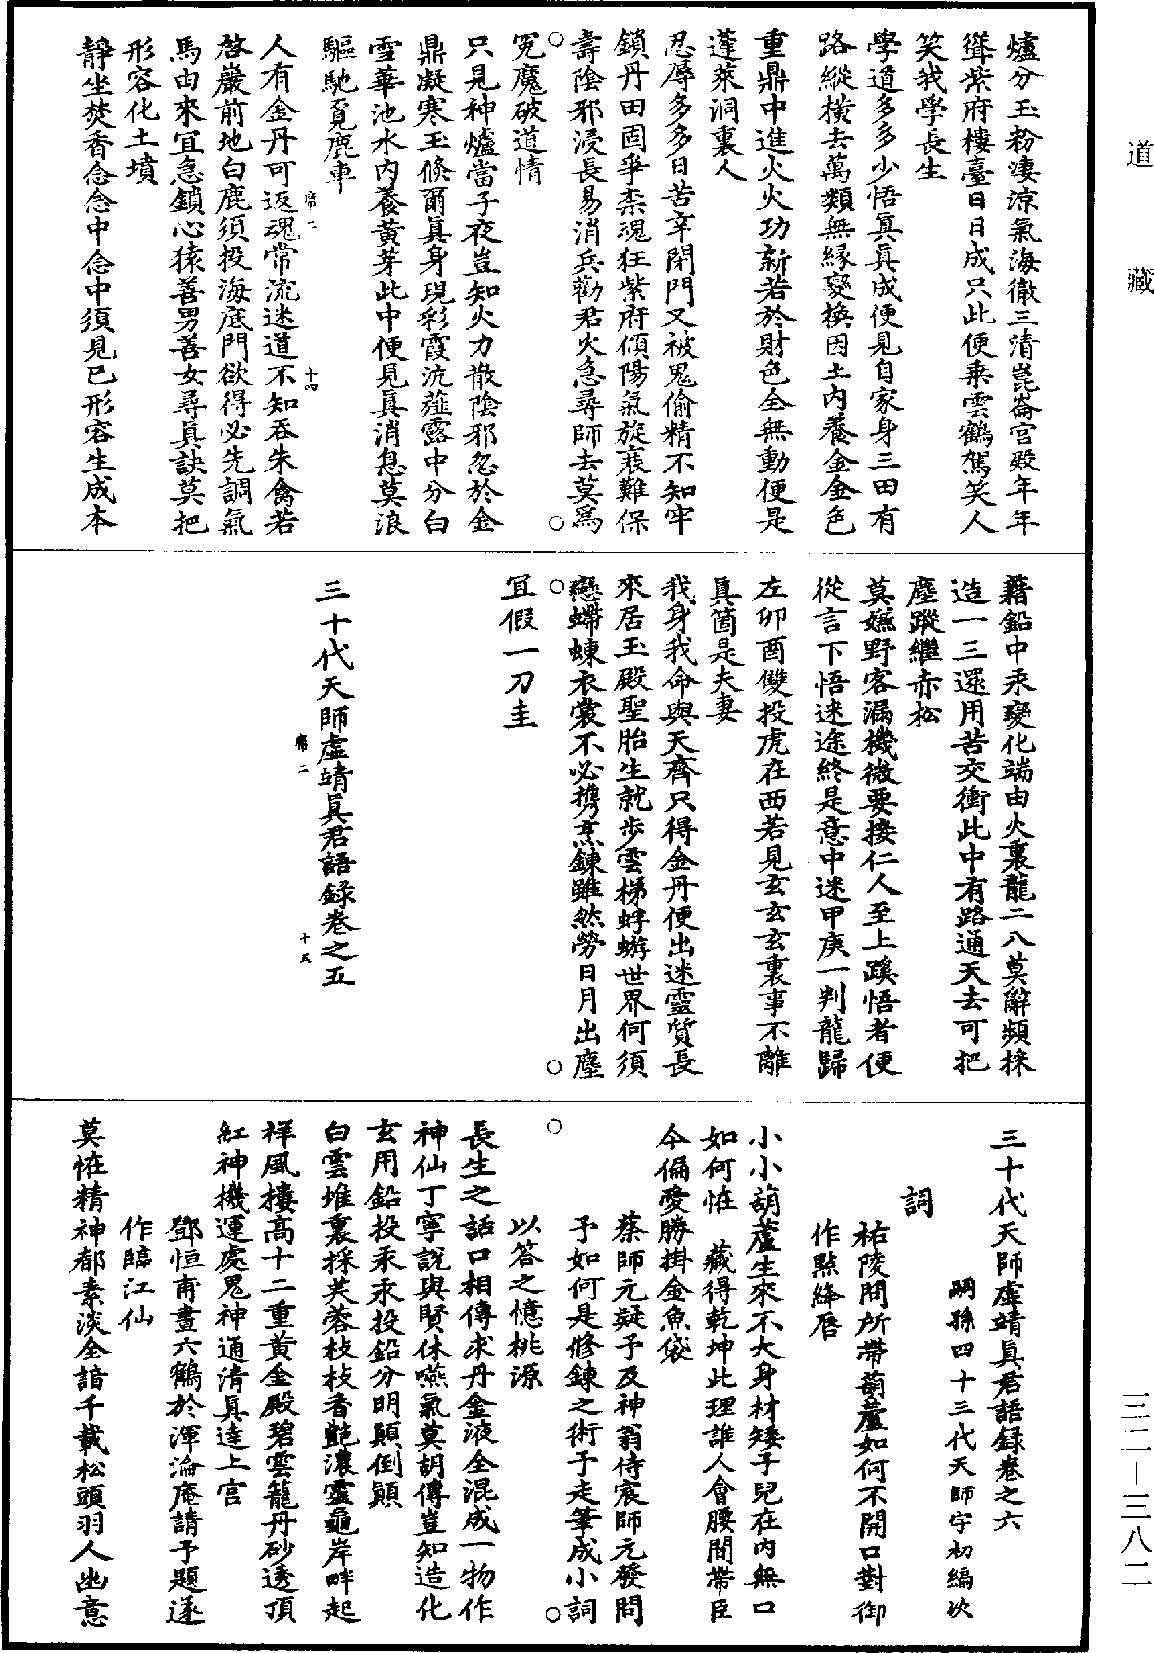 道藏
爐分玉粉淒涼氣海徹三清崑崙宮殿年年
聳紫府樓臺日日成只此便乘雲鶴駕笑人
笑我學長生
學道多多少悟真真成便見自家身三田有
路縱橫去萬類無緣變換因土內養金金色
重鼎中進火火功新若於財色全無動便是
蓬萊洞裏人
忍辱多多日苦辛閉門又被鬼偷精不知牢
鎖丹田固爭柰魂狂紫府傾陽氣旋衰難保
壽陰邪浸長易消兵勸君火急尋師去莫為
冤魔破道情
只見神爐當子夜豈知火力散陰邪忽於金
鼎凝寒玉倏爾真身現彩霞沆瀣露中分白
雪華池水內養黃芽此中便見真消息莫浪
驅馳覓鹿車
人有金丹可返魂常流迷道不知吞朱禽若
啓巖前地白鹿須投海底門欲得必先調氣
馬由來宜急鎖心猿善男善女尋真訣莫把
形容化土墳
靜坐焚香念念中念中須見已形容生成本
席二
十四
藉鉛中汞變化端由火裏龍二八莫辭頻採
造一三還用苦交衝此中有路通天去可把
塵蹤繼赤松
莫嫌野客漏機微要接仁人至上蹊悟者便
從言下悟迷途終是意中迷甲庚一判龍歸
左卯酉雙投虎在西若見玄玄玄裏事不離
真箇是夫妻
我身我命與天齊只得金丹便出迷靈質長
來居玉殿聖胎生就步雲梯蜉蝣世界何須
戀螮蝀衣裳不必携烹鍊雖然勞日月出塵
宜假一刀圭
三十代天師虛靖真君語錄卷之五
席二
十五
三十代天師虛靖真君語錄卷之六
嗣孫四十三代天師宇初編次
詞
祐陵問所帶葫蘆如何不開口對御
作點絳唇
小小葫蘆生來不大身材矮子兒在內無口
如何怪　藏得乾坤此理誰人會腰間帶臣
今偏愛勝掛金魚袋
蔡師元疑予及神翁侍宸師元發問
予如何是修鍊之術予走筆成小詞
以答之憶桃源
長生之話口相傳求丹金液全混成一物作
神仙丁寧說與賢休嚥氣莫胡傳豈知造化
玄用鉛投汞汞投鉛分明顛倒顛
白雲堆裏採芙蓉枝枝香艷濃靈龜岸畔起
祥風樓高十二重黃金殿碧雲籠丹砂透頂
紅神機運處鬼神通清真達上宮
鄧恒甫畫六鶴於渾淪庵請予題遂
作臨江仙
莫怪精神都素淡全諳千載松頭羽人幽意
三二—三八二